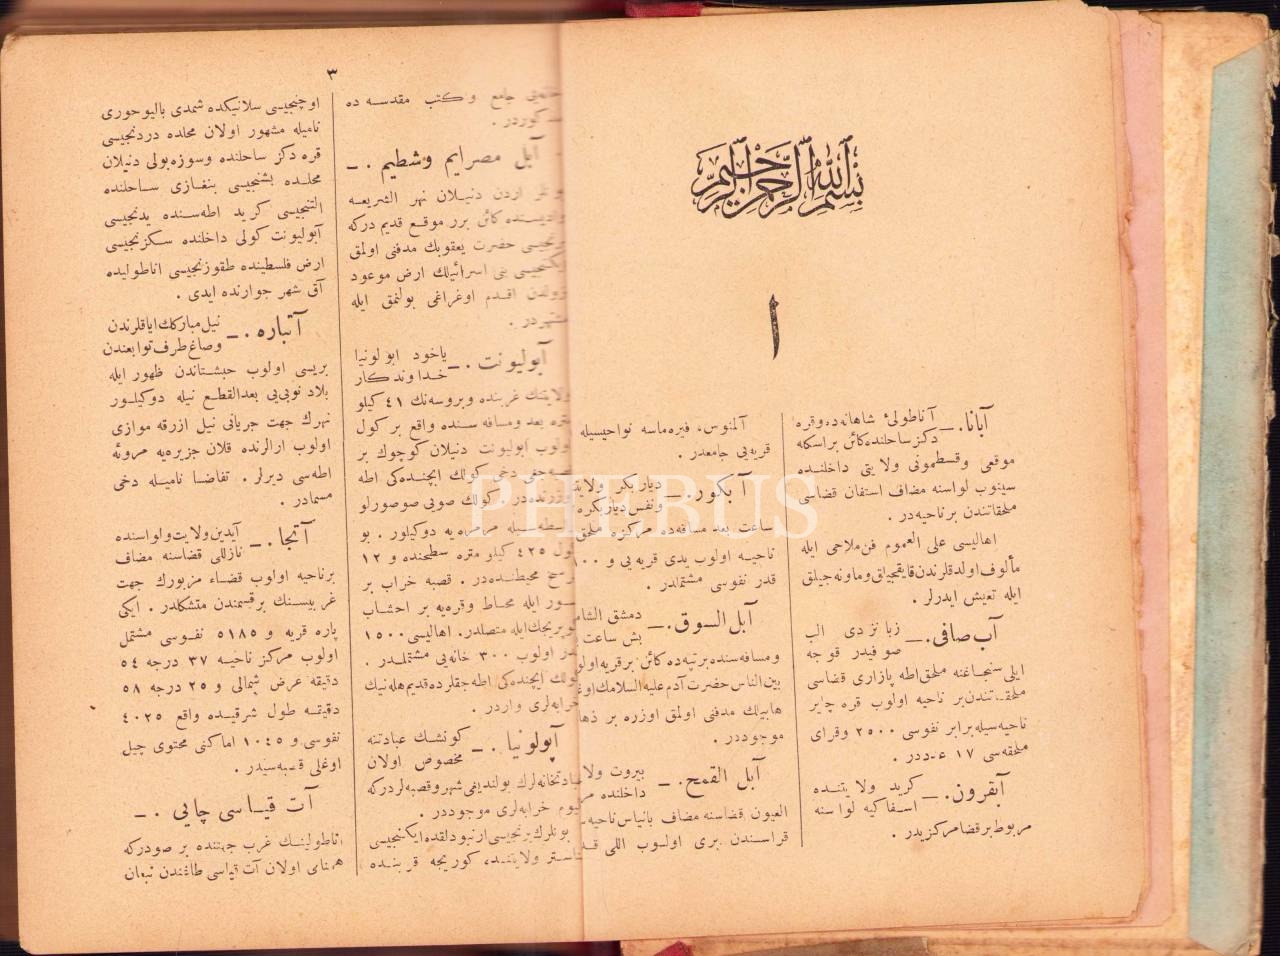 بسم الله الرحمن الرحيم
ا
آبانا. ــ آناطولئ شاهانه‌ده وقره
دکز ساحلنده کائن بر اسکله
موقعی وقسطمونی ولایتی داخلنده
سینوب لواسنه مضاف استفان قضاسی
ملحقاتندن بر ناحیه‌در .
اهالیسی علی العموم فن ملاحی ایله
مألوف اولدقلرندن قایقجیلق وماونه‌جیلق
ایله تعیش ایدرلر .
آب صافی. ــ زبانزدی الب
صوفیدر قوجه
ایلی سنجاغنه ملحق اطه پازاری قضاسی
ملحقاتندن بر ناحیه اولوب قره چایر
ناحیه‌سیله برابر نفوسی ٢٥٠٠ وقرای
ملحقه‌سی ١٧ عددر .
آبقرون. ــ کرید ولایتنده
اسفاکیه لواسنه
مربوط بر قضا مرکزیدر .
آلمنوس، فیزه‌ماسه نواحیسیله
قریه‌یی جامعدر .
آبکور. ــ دیاربکر ولایتی
ونفس دیاربکره
ساعت بعد مسافه‌ده مرکزه ملحق
ناحیه اولوب یدی قریه‌یی و
قدر نفوسی مشتملدر .
آبل السوق. ــ دمشق الشام
بش ساعت
ومسافه‌سنده بر تپه‌ده کائن بر قریه اولوب
بین الناس حضرت آدم علیه السلامك اوغلی
هابیلك مدفنی اولمق اوزره بر
موجوددر .
آبل القمح. ــ بیروت ولایتی
داخلنده
العیون قضاسنه مضاف بانیاس ناحیه‌سی
قراسندن بری اولوب اللی
٣
جامع وکتب مقدسه ده
مذکوردر .
آبل مصرایم وشطیم . ــ
بونلر اردن دنیلان نهر الشریعه
وادیسنده کائن برر موقع قدیم درکه
برنجیسی حضرت یعقوبك مدفنی اولمق
ایکنجیسی بنی اسرائیلك ارض موعود
نزولدن اقدم اوغراغی بولنمق ایله
مشتهردر .
آبولیونت . ــ یاخود ابولونیا
خداوندکار
ولایتنك غربنده وبروسه‌نك ٤١ کیلو
متره بعد ومسافه سنده واقع بر کول
اولوب ابولیونت دنیلان کوچوك بر
دخی کولك ایچنده‌کی اطه
اوزرنده‌در . کولك صویی صوصورلو
واسطه‌سیله مرمره‌یه دوکیلور . بو
کول ٤٢٥ کیلو متره سطحنده و ١٢
محیطنده‌در . قصبه خراب بر
سور ایله محاط وقره‌یه بر احشاب
کوپریجك ایله متصلدر. اهالیسی ١٥٠٠
قدر اولوب ٣٠٠ خانه‌یی مشتملدر .
کولك ایچنده‌کی اطه جقلرده قدیم هله‌نیك
خرابه‌لری واردر .
آپولونیا . ــ کونشك عبادتنه
مخصوص اولان
عبادتخانه‌لرك بولندیغی شهر وقصبه‌لردرکه
الیوم خرابه‌لری موجوددر .
بونلرك برنجیسی ارنبودلقده ایکنجیسی
مناستر ولایتنده، کوریجه قربنده
اوچنجیسی سلانیکده شمدی بالیوحوری
نامیله مشهور اولان محلده دردنجیسی
قره دکز ساحلنده وسوزه‌بولی دنیلان
محلده بشنجیسی بنغازی ساحلنده
التنجیسی کرید اطه‌سنده یدنجیسی
آبولیونت کولی داخلنده سکزنجیسی
ارض فلسطینده طقوزنجیسی اناطولیده
آق شهر جوارنده ایدی .
آتباره . ــ نیل مبارکك ایاقلرندن
وصاغ طرف توابعندن
بریسی اولوب حبشستاندن ظهور ایله
بلاد نوبی‌یی بعدالقطع نیله دوکیلور
نهرك جهت جریانی نیل ازرقه موازی
اولوب ارالرنده قلان جزیره‌یه مروئه
اطه‌سی دیرلر . تفاضا نامیله دخی
مسمادر .
آتجا . ــ آیدین ولایت ولواسنده
نازللی قضاسنه مضاف
برناحیه اولوب قضاء مزبورك جهت
غربیسنك بر قسمندن متشکلدر . ایکی
پاره قریه و ٥١٨٥ نفوسی مشتمل
اولوب مرکز ناحیه ٣٧ درجه ٥٤
دقیقه عرض شمالی و ٢٥ درجه ٥٨
دقیقه طول شرقیده واقع ٤٠٢٥
نفوسی و ١٠٤٥ اماکنی محتوی چیل
اوغلی قصبه‌سیدر .
آت قیاسی چایی . ــ
اناطولینك غرب جهتنده بر صودرکه
همنای اولان آت قیاسی طاغندن نبعان
PHEBUS